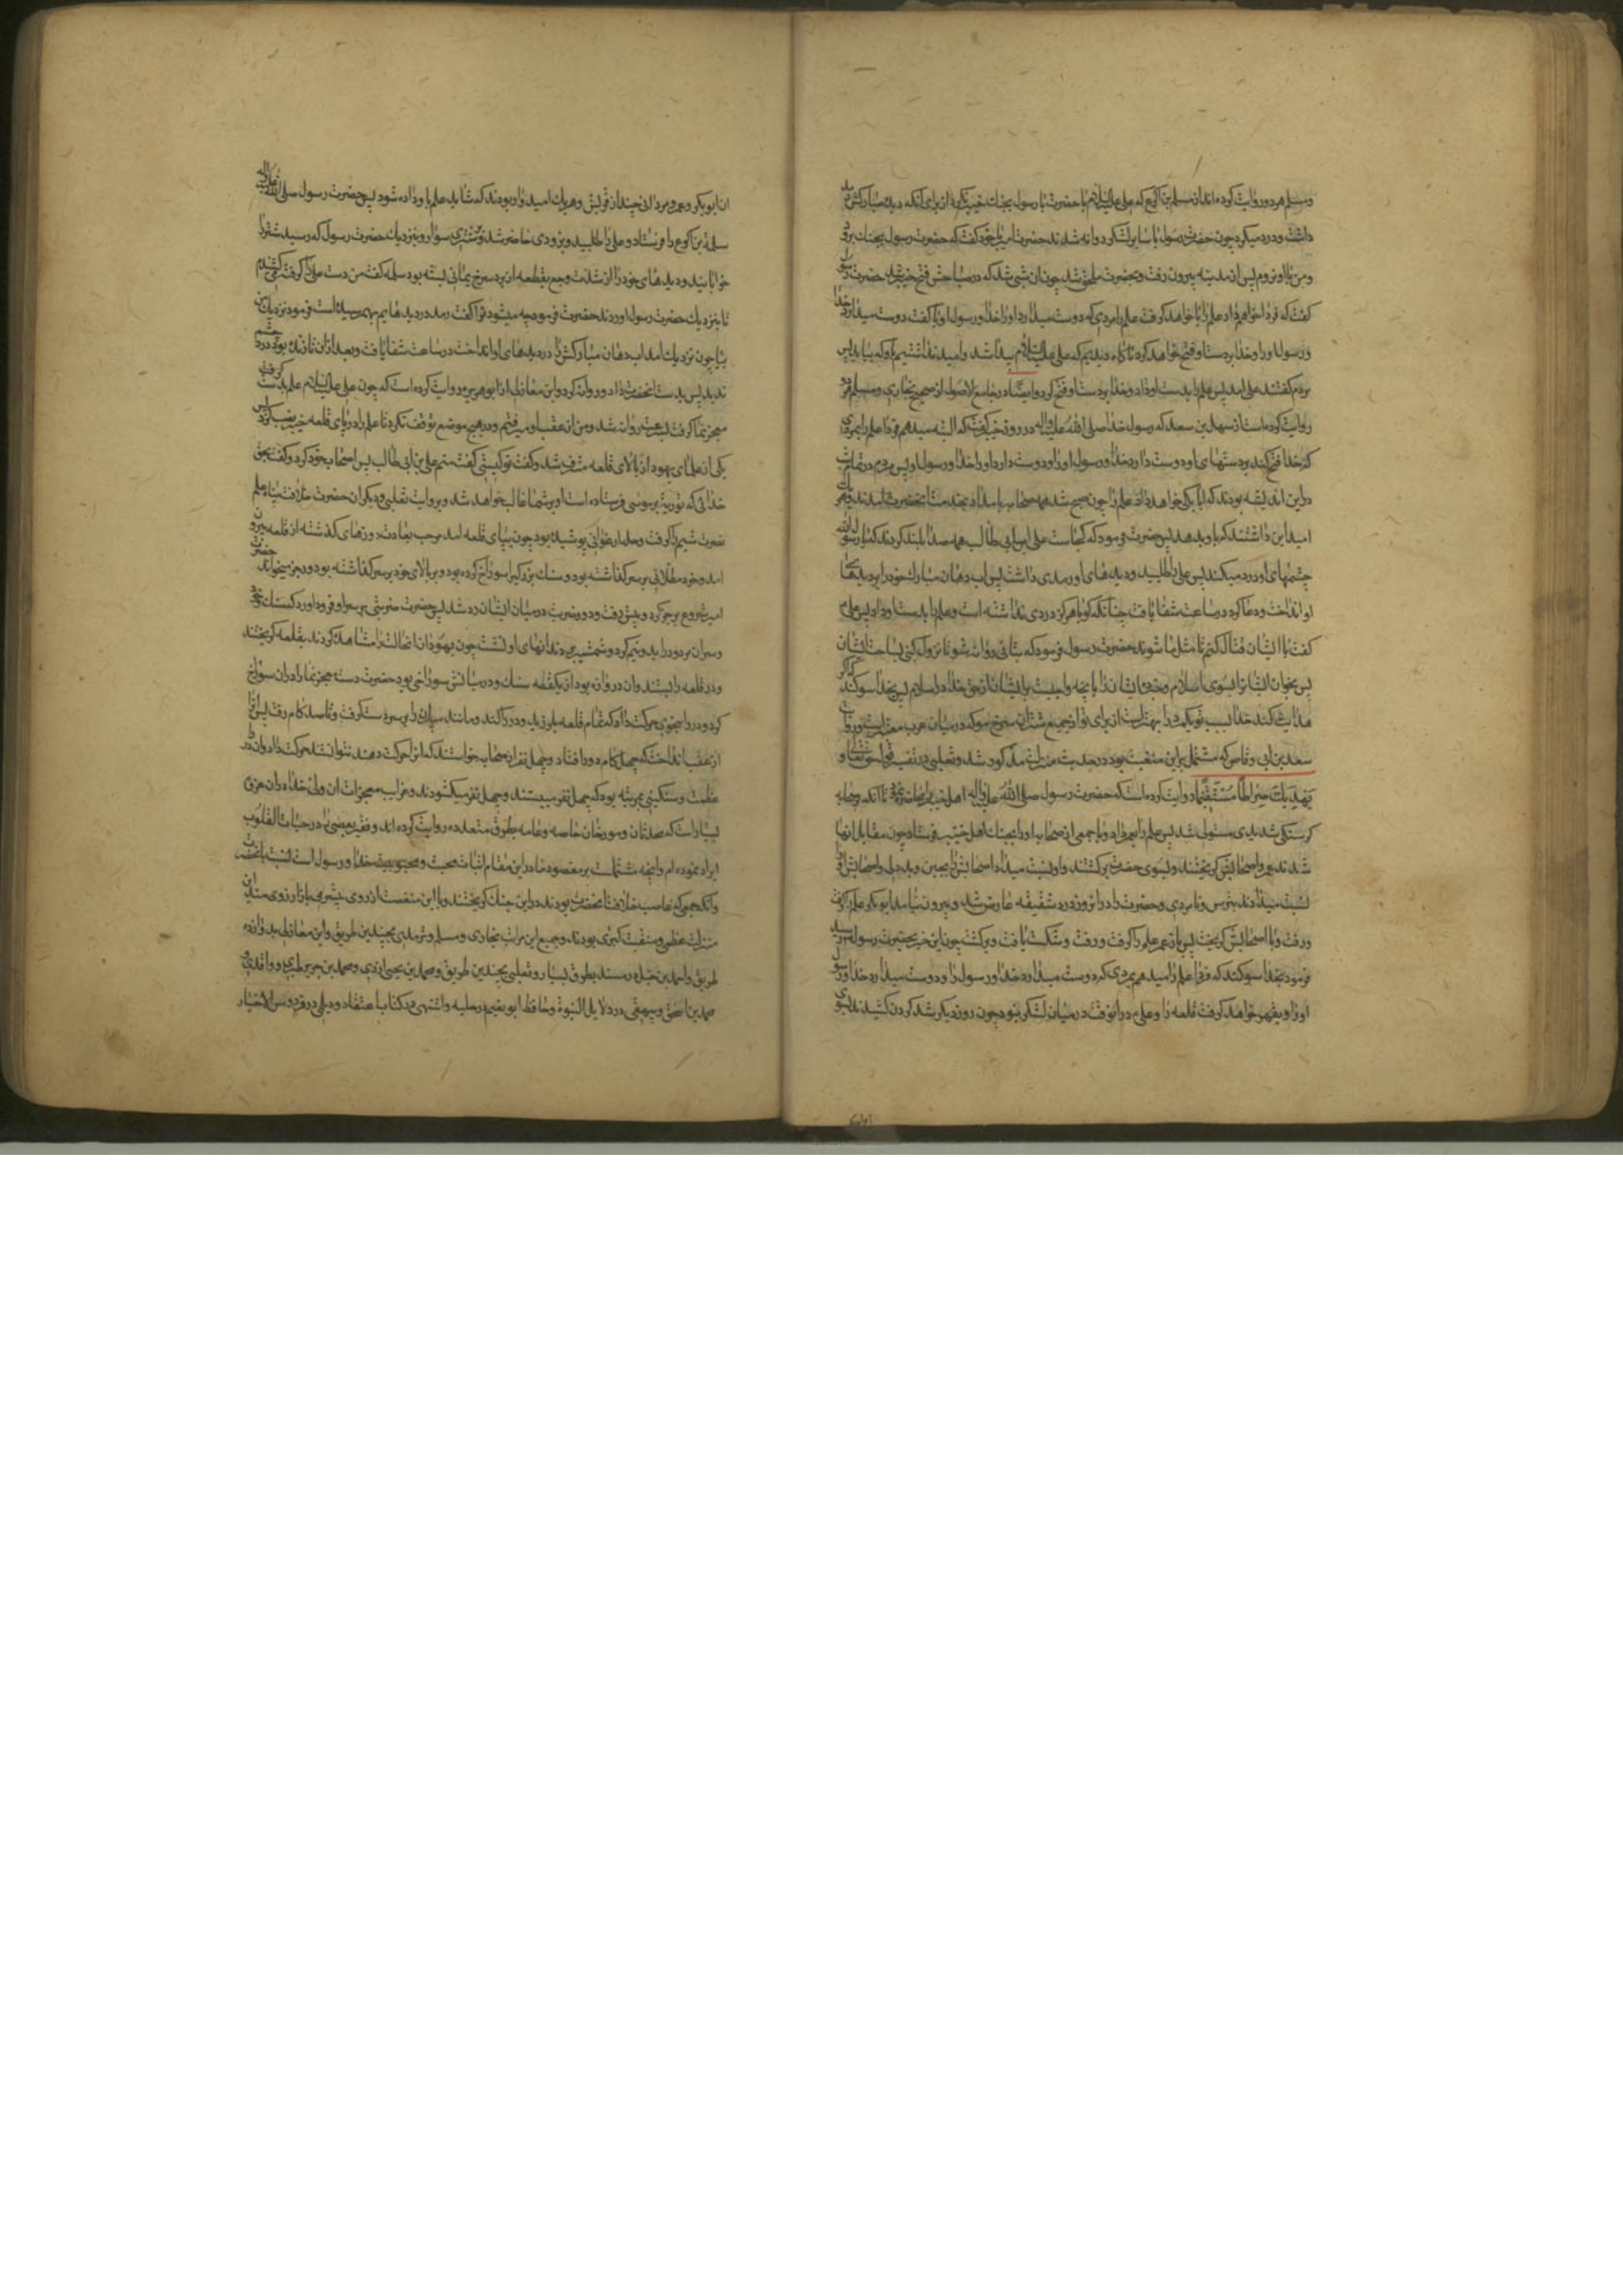 ومسلم هردو روایت کرده‌اند از سلمه بن اکوع که علی علیه السلام با حضرت رسول بجنگ خیبر نرفته بود از برای آنکه دیده مبارکش رمد
داشت و درد میکرد چون حضرت رسول با سایر لشکر روانه شدند حضرت امیر با خود گفت که حضرت رسول بجنگ برود
ومن با او نروم پس از مدینه بیرون رفت و بحضرت ملحق شد چون آن شبی شد که در صباحش فتح خیبر شد حضرت رسول
گفت که فردا خواهم داد علم را یا خواهد گرفت علم را مردی که دوست میدارد او را خدا و رسول او یا گفت دوست میدارد خدا
و رسول او را و خدا بر دست او فتح خواهد کرد ناگاه دیدیم که علی علیه السلام پیدا شد و امید نداشتیم باو که بیاید پس
مردم گفتند علی آمد پس علم را بدست او داد و خدا بر دست او فتح کرد و ایضا در جامع الاصول از صحیح بخاری و مسلم هردو
روایت کرده است از سهل بن سعد که رسول خدا صلی الله علیه واله در روز خیبر گفت که البته میدهم فردا علم را بمردی
که خدا فتح کند بر دستهای او دوست دارد خدا و رسول او را و دوست دارد او را خدا و رسول او پس مردم در تمام شب
در این اندیشه بودند که آیا بکی خواهد داد علم را چون صبح شد همه صحابه بامداد بخدمت آنحضرت آمدند و هر یک
امید این داشتند که باو بدهد پس حضرت فرمود که کجاست علی ابن ابی طالب همه صدا بلند کردند که یا رسول الله
چشمهای او درد میکند پس علی را طلبید و دیده‌های او رمدی داشت پس آب دهان مبارک خود را بر دیدهای
او انداخت و دعا کرد در ساعت شفا یافت چنانکه گویا هرگز دردی نداشته است و علم را بدست او داد پس علی
گفت با ایشان قتال کنم تا مثل ما شوند حضرت رسول فرمود که بتأنی روانه شو تا نزول کنی بساحت ایشان
پس بخوان ایشانرا بسوی اسلام و خبر ده ایشان را بآنچه واجبست بر ایشان از حق خدا در اسلام پس بخدا سوگند که اگر
هدایت کند خدا بسبب تو یکمرد را بهتر است از برای تو از جمیع شتران سرخ مو که در میان عرب
سعد بن ابی وقاص که مشتمل بر این منقبت بود در حدیث منزلت مذکور شد و ثعلبی در تفسیر قول حق تعالی و
یهدیک صراطا مستقیما روایت کرده است که حضرت رسول صلی الله علیه واله اهل خیبر را محاصره نمود تا آنکه صحابه
گرسنگی شدیدی مستولی شد پس علم را بعمر داد و با جمعی از صحابه او را بجنگ اهل خیبر فرستاد چون مقابل آنها
شدند عمر و اصحابش گریختند و بسوی حضرت برگشتند و او نسبت میداد اصحابش را بجبن و بددلی و اصحابش او را
نسبت میدادند بترس و نامردی و حضرت را در آنروز درد شقیقه عارض شد و بیرون نیامد ابوبکر علم را گرفت
و رفت و با اصحابش گریخت پس باز عمر علم را گرفت و رفت و شکست یافت و برگشت چون این خبر بحضرت رسول رسید
فرمود بخدا سوگند که فردا علم را میدهم بمردی که دوست میدارد خدا و رسول را و دوست میدارد خدا و رسول
او را و بقهر خواهد گرفت قلعه را و علی در آنوقت در میان لشکر نبود چون روز دیگر شد گردن کشیدند بسوی
ان ابوبکر و عمر و مردانی چند از قریش و هریک امیدوار بودند که شاید علم باو داده شود پس حضرت رسول صلی الله علیه واله
سلمة بن اکوع را فرستاد و علی را طلبید و بزودی حاضر شد و بر شتری سوار و بنزدیک حضرت رسول که رسید شتر را
خوابانید و دیدهای خود را از شدت وجع بقطعه از برد سرخ یمانی بسته بود سلمه گفت من دست علی را گرفتم و میکشیدم
تا بنزدیک حضرت رسول آوردند حضرت فرمود چه میشود ترا گفت رمد در دیدهایم بهم رسیده است فرمود نزدیک من
بیا چون نزدیک آمد آب دهان مبارکش را در دیدهای او انداخت در ساعت شفا یافت و بعد از آن تا زنده بود درد چشم
ندید پس بدست آنحضرت داد و روانه کرد و ابن مغازلی از ابوهریره روایت کرده است که چون علی علیه السلام علم بدست
معجز نما گرفت بسرعت روانه شد و من از عقب او میرفتم و در هیچ موضع توقف نکرد تا علم را در پای قلعه خیبر نصب کرد پس
یکی از علمای یهود از بالای قلعه مشرف شد و گفت تو کیستی گفت منم علی بن ابی طالب پس باصحاب خود کرد و گفت بحق
خدائی که توریة بر موسی فرستاده است او بر شما غالب خواهد شد و بروایت ثعلبی و دیگران حضرت علم
نصرت شیم را گرفت و حله ارغوانی پوشیده بود چون بپای قلعه آمد مرحب بعادت روزهای گذشته از قلعه بیرون
آمد و خود مطلائی بر سر گذاشته بود و سنگ بزرگی را سوراخ کرده بود و بر بالای خود بر سر گذاشته بود و رجز میخواند حضرت
امیر شروع برجز کرد و پیش رفت و دو ضربت در میان ایشان رد شد پس حضرت ضربتی بر سر او فرود آورد که سنگ و خود
و سر آن مردود را بدو نیم کرد و شمشیر بدندانهای او نشست چون یهودان آنحالت را مشاهده کردند بقلعه گریختند
و در قلعه را بستند و آن دروازه بود از یکقطعه سنگ و در میانش سوراخی بود حضرت دست معجزنما را در آن سوراخ
کرد و در را بنحوی حرکت داد که تمام قلعه بلرزید و در را کند و مانند سپری آنرا بر سر دست گرفت و تا صد گام رفت پس آنرا
از عقب انداخت که چهل گام دور افتاد و چهل نفر از صحابه خواستند که آنرا حرکت دهند نتوانستند حرکت داد و آن در
عظمت و سنگینی بمرتبه بود که چهل نفر میبستند و چهل نفر میگشودند و غرایب معجزات آن ولی خدا در آن غزوه
بسیار است که محدثان و مورخان خاصه و عامه بطرق متعدده روایت کرده‌اند و فقیر بعضی را در حیات القلوب
ایراد نموده‌ام و آنچه مشتملست بر مقصود ما در این مقام اثبات محبت و محبوبیت خدا و رسول است نسبت بآنحضرت
و آنکه جمعی که غاصب خلافت آنحضرت بودند در این جنگ گریختند و با این منقصت از روی بیشرمی باز آرزوی مثل این
منزلت عظمی و منقبت کبری بودند و جمیع این مراتب بخاری و مسلم و ترمذی بچندین طریق و ابن مغازلی بدوازده
طریق و احمد بن حنبل در مسند بطرق بسیار و ثعلبی بچندین طریق و محمد بن یحیی ازدی و محمد بن جریر طبری و واقدی
محمد بن اسحق و بیهقی در دلایل النبوة و حافظ ابونعیم در حلیه و اشنهی در کتاب اعتقاد و دیلمی در فردوس الاخبار